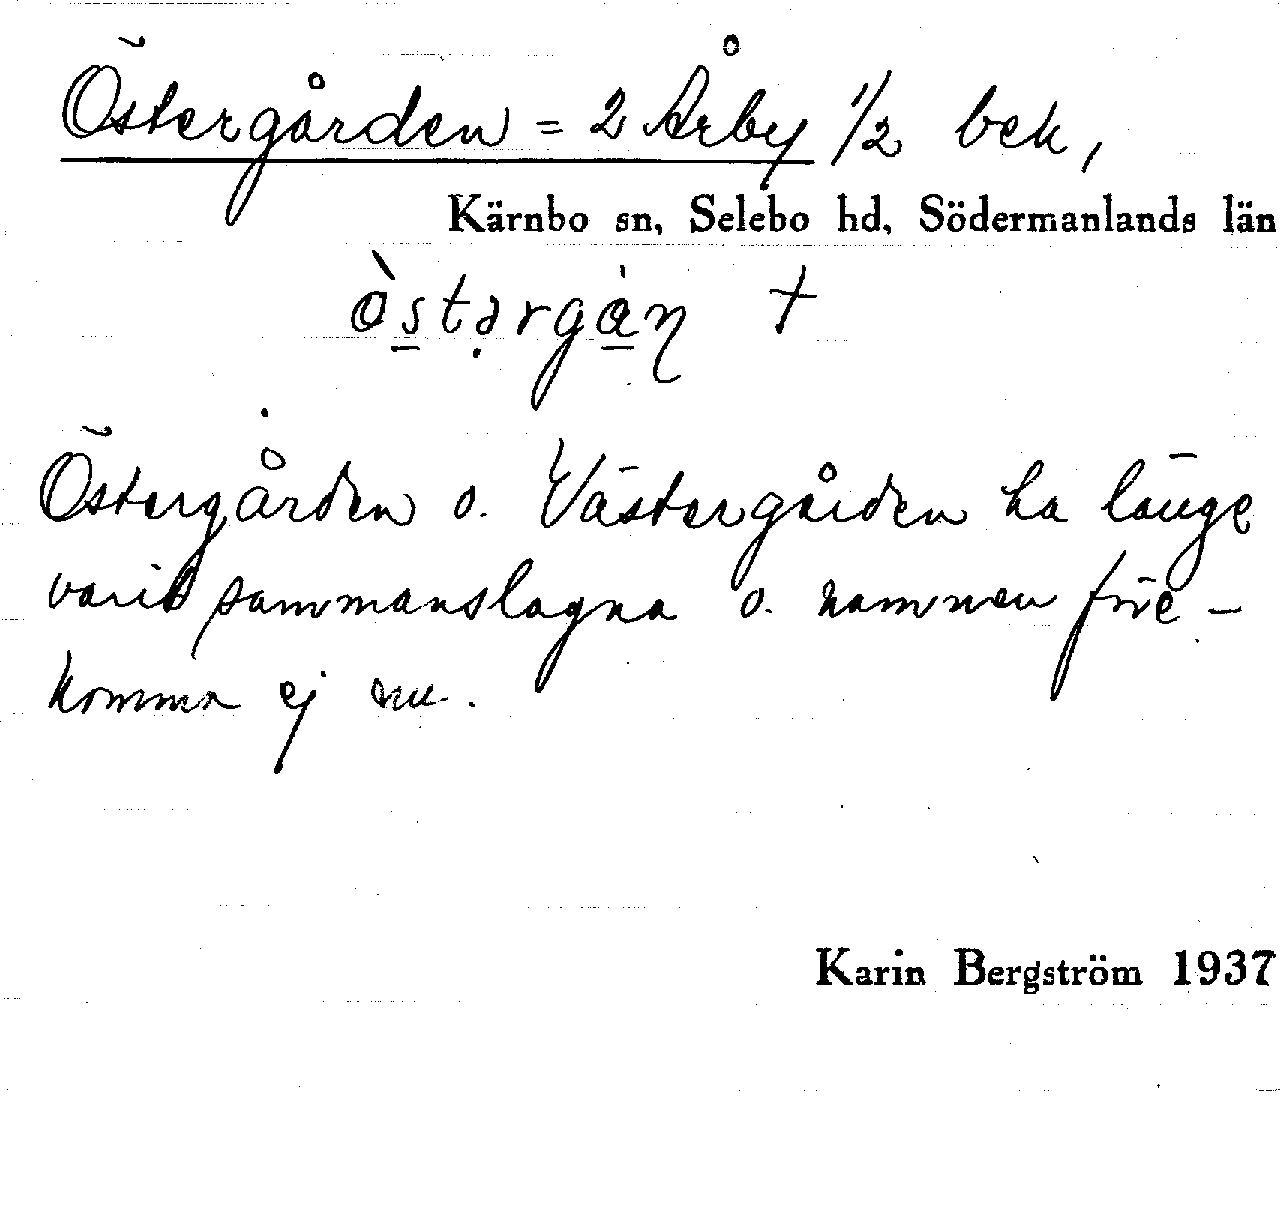 Östergården = 2 Årby 1/2 bek,
Kärnbo sn, Selebo hd, Södermanlands län
Östergården o. Västergården ha länge
varit sammanslagna o. namnen före-
komma ej nu.
Karin Bergström 1937